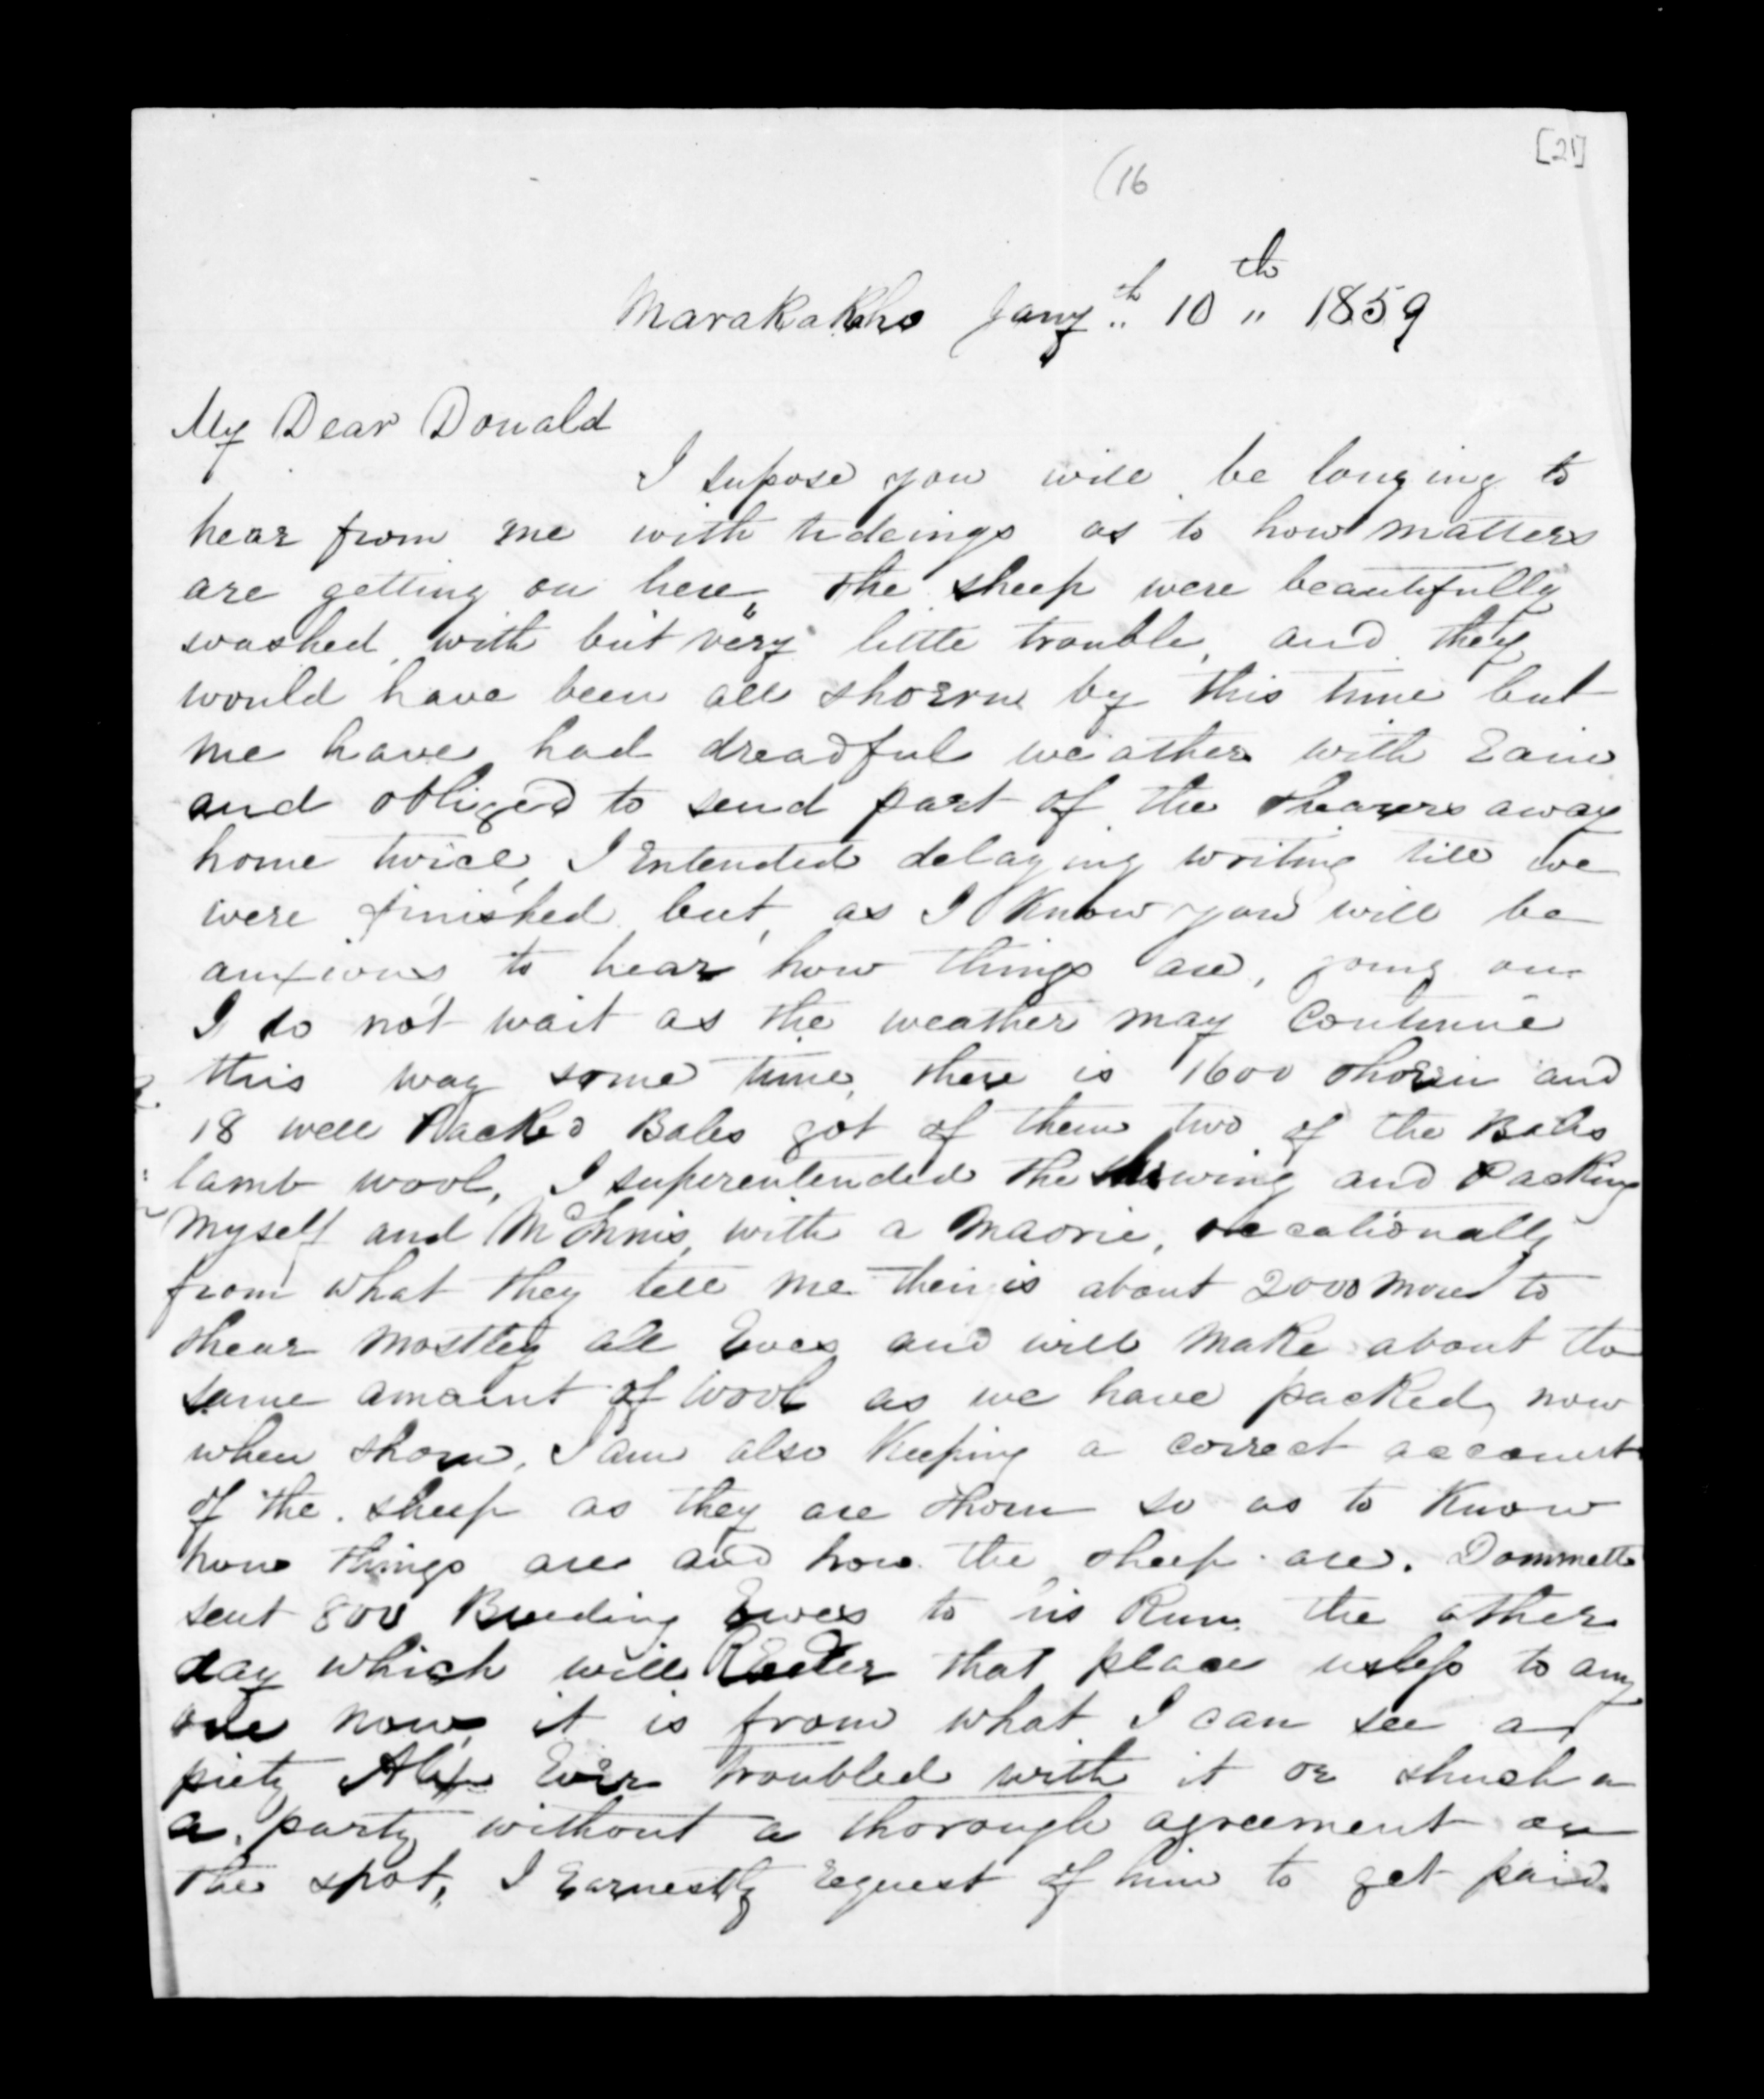 [21]
(16
Marakakaho Jany th 10 th " 1859
My Dear Donald
I supose you will be longing to
hear from me with tideings as to how matters
are getting on here, the sheep were beautifully
washed, with but very little trouble, and they
would have been all shorrn by this time but
me have had dreadful weather with rain
and obliged to send part of the shearers away
home twice, I Entended delaying writing till we
were finished but, as I Know you will be
anxious to hear how things are, going on
I do not wait as the weather may Continue
this way some time, there is 1600 shorn and
18 well Packed Bales got of them two of the Bales
lamb wool, I superentended the and Packing
myself and McInnis, with a Maorie, occationally
from what they tell me their is about 2000 more to
shear mostley all Ewes and will make about the
same amount of wool as we have packed, now
when shorn, I am also Keeping a correct account
of the sheep as they are shorn so as to Know
how things are and how the sheep are. Dommett
sent 800 Breeding Ewes to his Run the other
day which will that place usless to any
one now, it is from what I can see a
piety Alex Ever troubled with it or shuch a
a party without a thorough agreement on
the spot, I Earnestly request of him to get paid